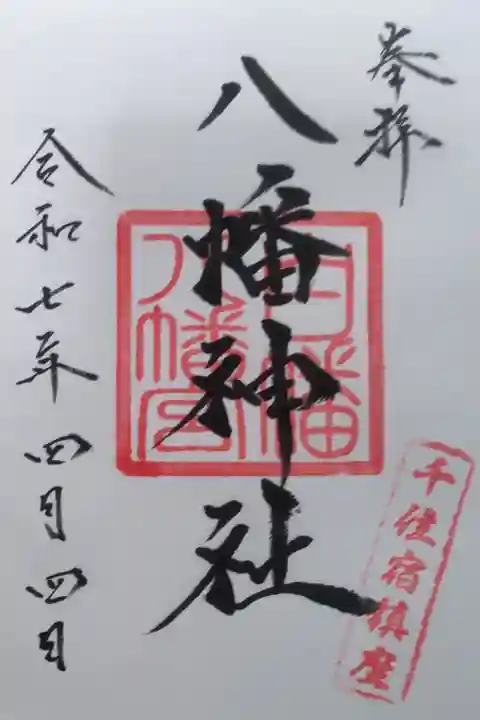 奉拝
八幡神社
千住宿鎮座
令和七年四月四日